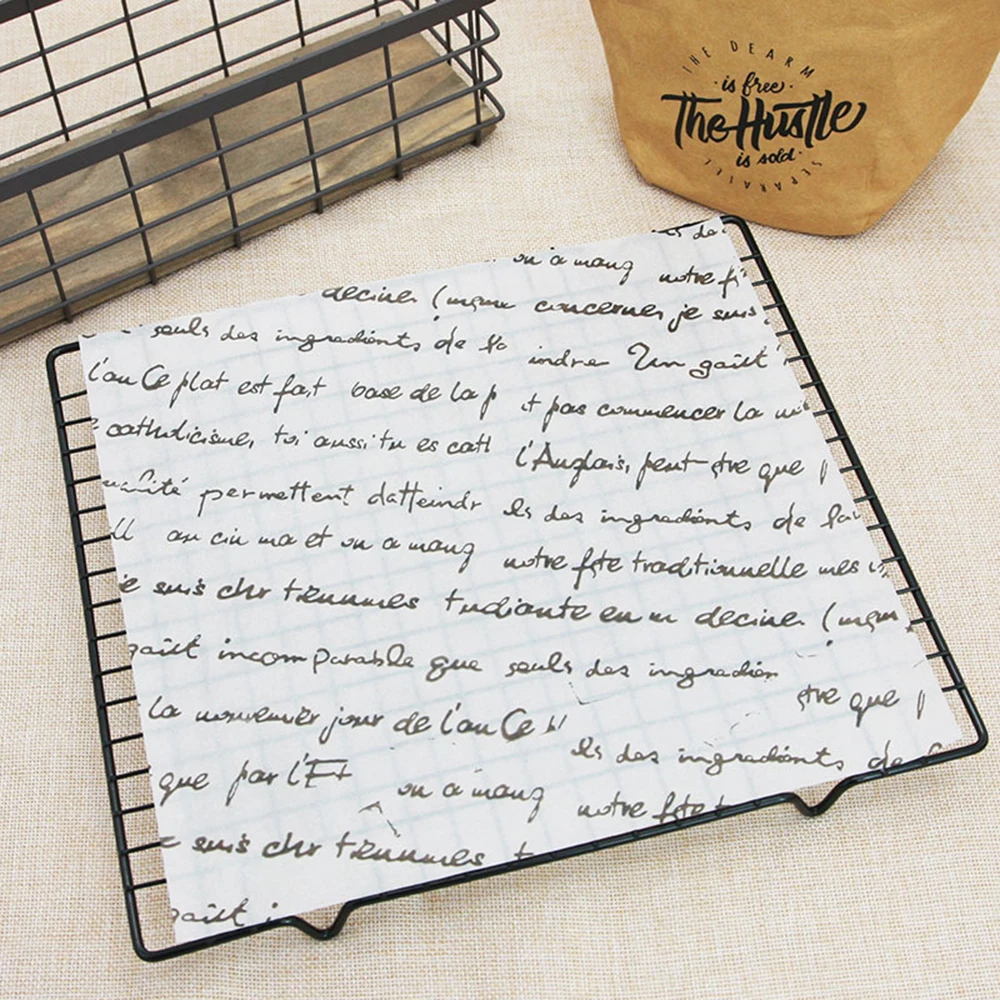 THE DEARM
is free
The Hustle
is sold
SEPARATE
on a mang notre
decine (mgnu concerner je suis
seuls des ingredients de
indre Un gaiit
l'an Ce plat est fait base de la p
t pas commencer la
catholicisme, toi aussi tu es catl
l'Anglais, peut-stre que
permettent datteindr
els des ingredients de
au ciu ma et on a mang
notre fste traditionnelle mes
je suis chr tiennmes tudiante en m decine (mgm
gaiit incomparable que seuls des ingredien
stre que
la nouvenir jour de l'an Ce
que par l'Et
els des ingredients de
on a mang notre fste t
e suis chr tiennmes t
gaiit